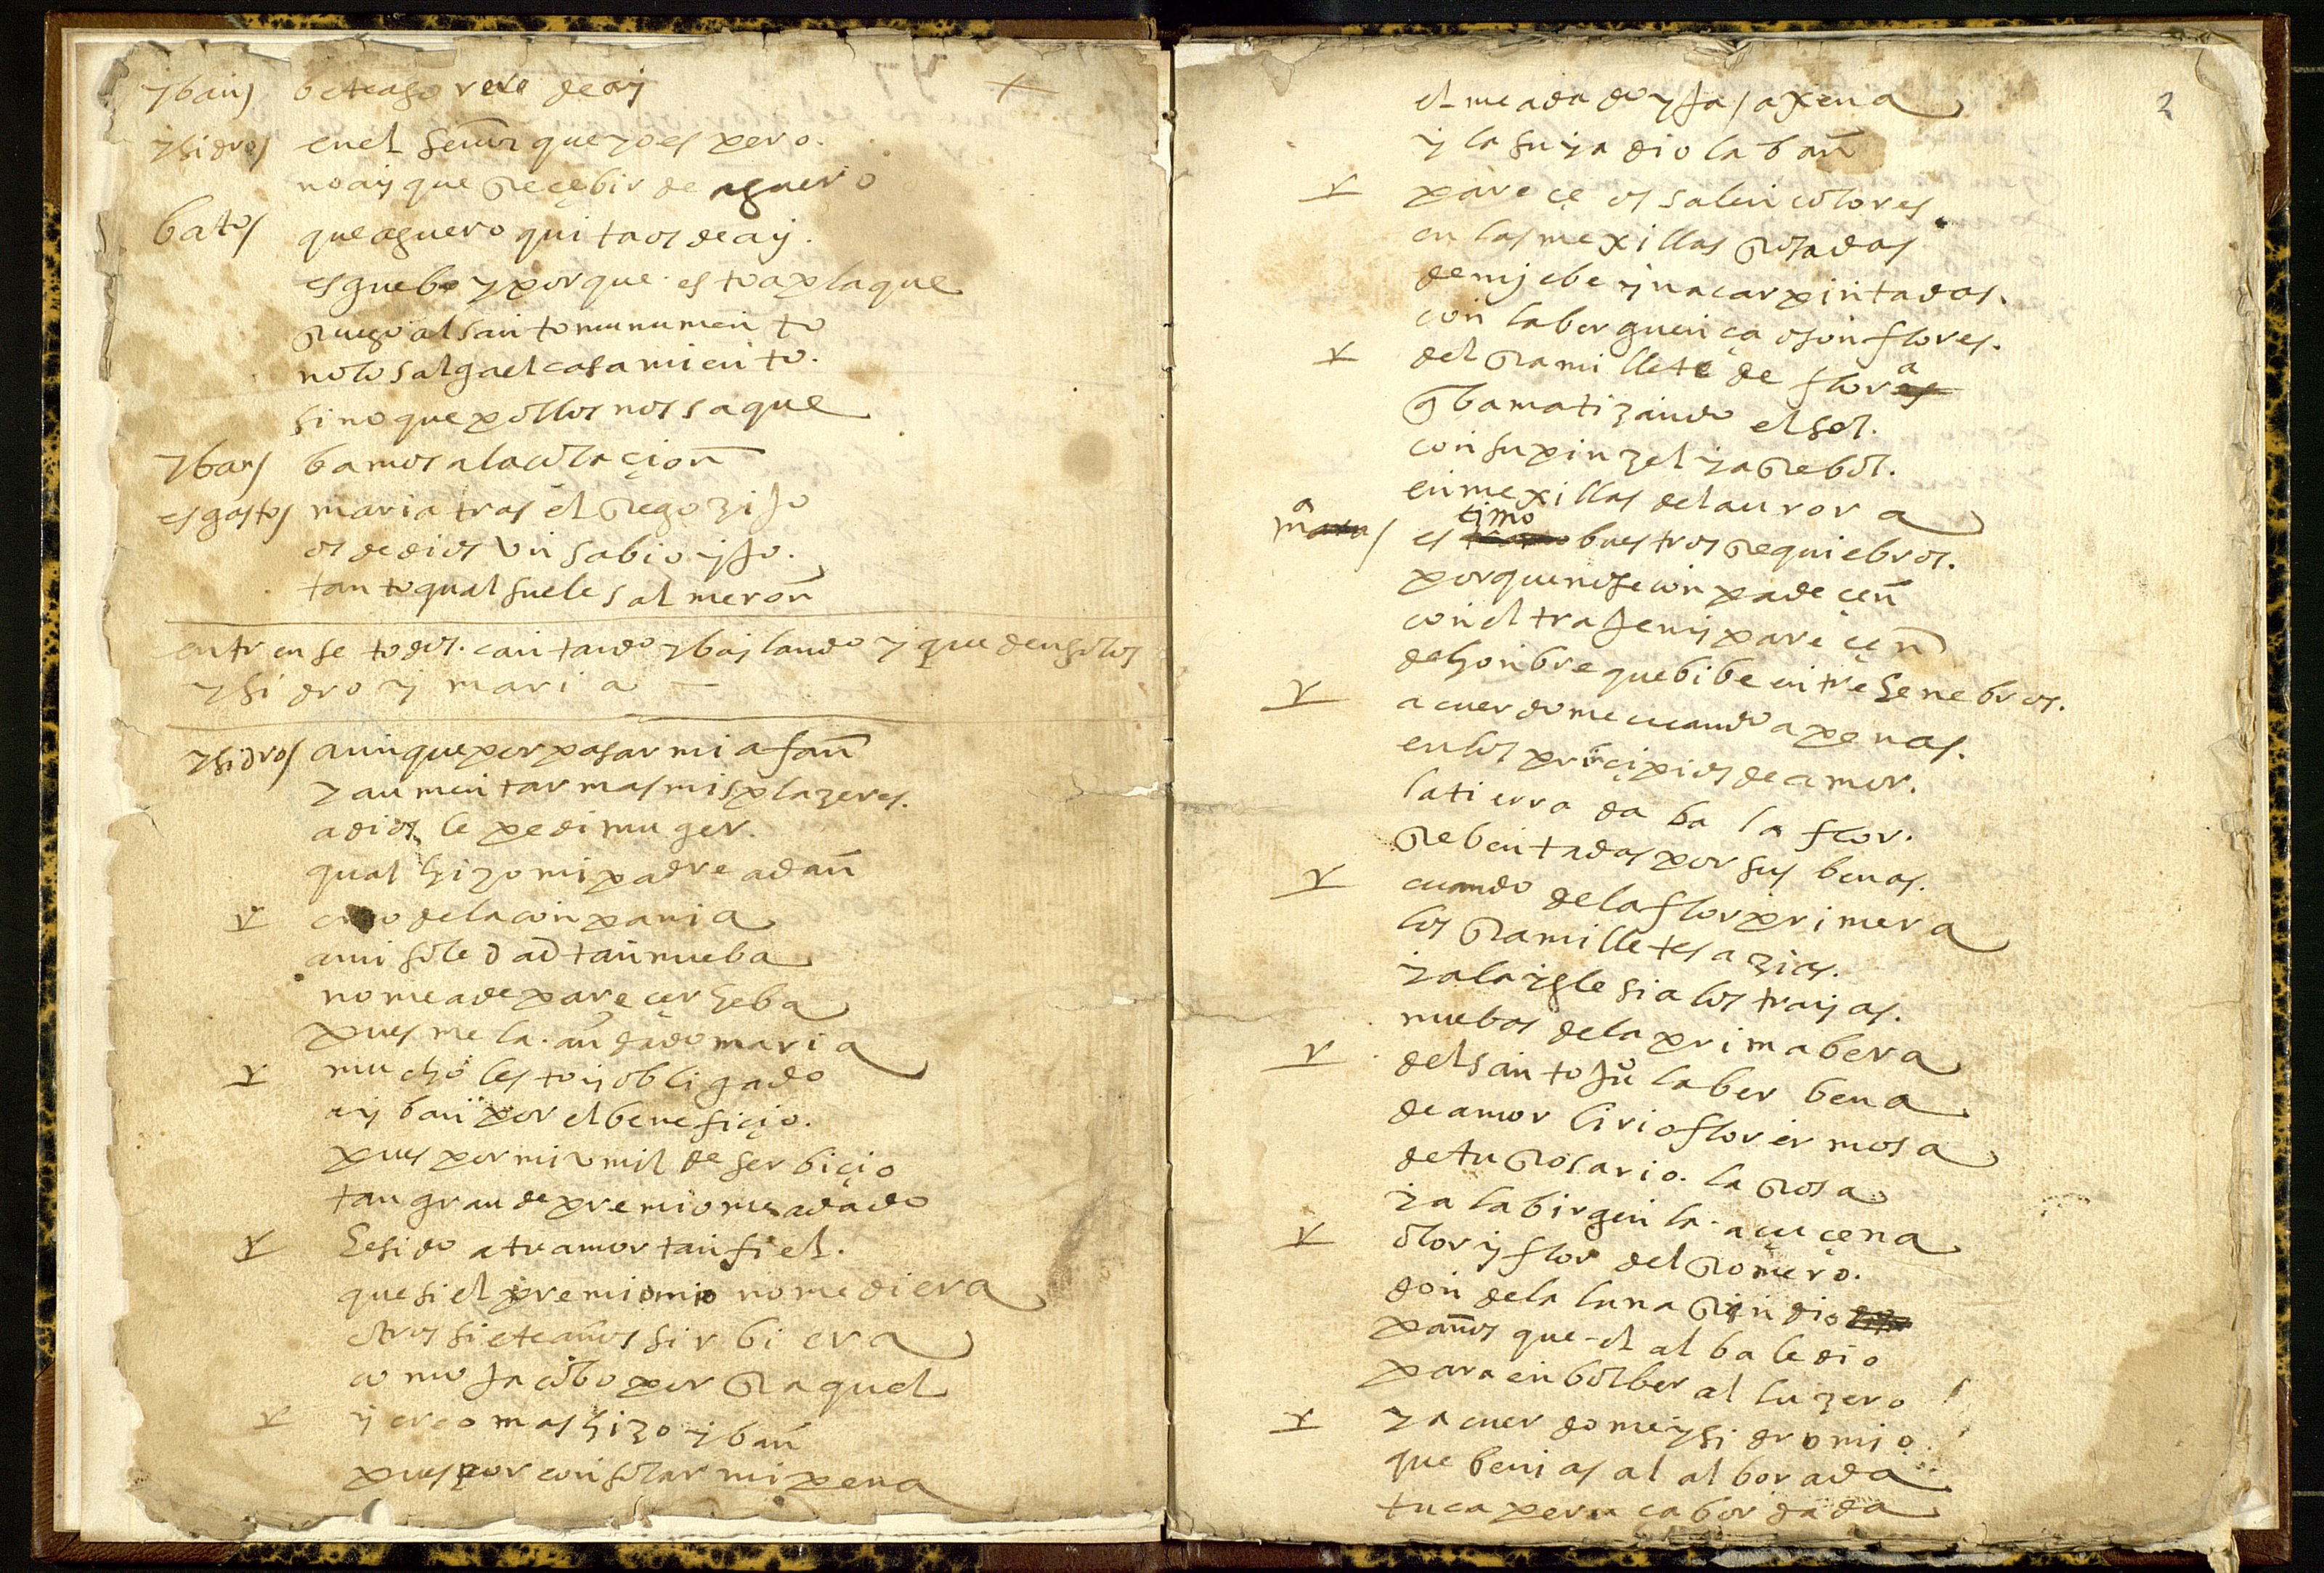 yban) bete agorera de ay
ysidro) en el señor que yo espero.
no ay que reçebir de aguero
bato) que aguero quitaos de ay.
es guebo y porque esto aplaque
ruego al santo munumento
no lo salga el casamiento.
sino que pollos nos saque
yban) bamos a la colaçion
esgasto) maria tras el regozijo
os de dios un sabio yjo.
tanto qual suele salmeron
entrense todos. cantando y bailando y queden solos
ysidro y maria
ysidro) aunque por pasar mi afan
y aumentar mas mis plazeres.
a dios le pedi muger.
qual hizo mi padre adan
Y creo de la conpania
a mi soledad tan nueba
no me a de pareçer heba
pues me la an dado maria
Y mucho le estoy obligado
a yban por el benefiçio.
pues por mi umilde serbiçio
tan grande premio me a dado
Y he sido a tu amor tan fiel.
que si el premio mio no me diera
otros siete años sirbiera
como jacobo por raquel
Y y creo mas hizo yban
pues por consolar mi pena
2
el me a dado yja ajena
y la suya dio laban
Y pareçe os salen colores
en las mexillas rosadas
de niebe y nacar pintadas.
con la berguença o son flores.
Y del ramillete de flora
yba matizando el sol.
con su pinzel y arebol.
en mexillas del aurora
ma) estimo buestros requiebros.
porque no se conpadeçen
con el traje ni pareçen
de honbre que bibe entre henebros.
Y acuerdome cuando apenas.
en los prinçipios de amor.
la tierra daba la flor.
rebentadas por sus benas.
Y cuando de la flor primera
los ramilletes azias.
y a la yglesia los trayas.
nuebos de la primabera
Y del santo juº la berbena
de amor lirio flor ermosa
de tu rosario. la rosa
y a la birgen la açuçena
Y olor y flor del romero.
don de la luna rindio
paños que el alba le dio
para enbolber al luzero
Y y acuerdome ysidro mio
que benias al alborada
tu caperuça bordada